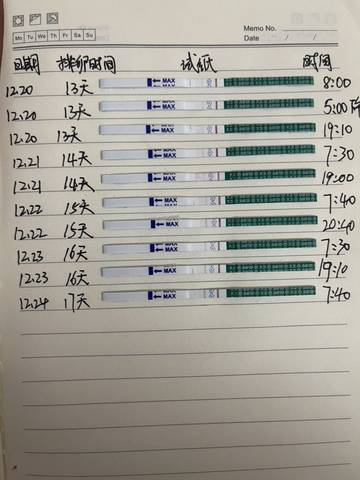 Memo No.
Mo Tu We Th Fr Sa Su
Date / /
日期 排卵时间 试纸 时间
12.20 13天 MAX 8:00
12.20 13天 MAX 5:00
12.20 13天 MAX 19:10
12.21 14天 MAX 7:30
12.21 14天 MAX 19:00
12.22 15天 MAX 7:40
12.22 15天 MAX 20:40
12.23 16天 MAX 7:30
12.23 16天 MAX 19:10
12.24 17天 MAX 7:40